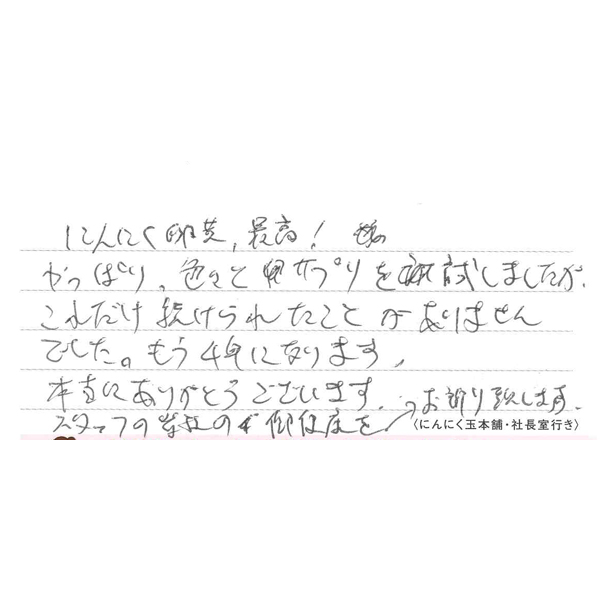 にんにく卵黄、最高!
やっぱり、色々とサプリを試しましたが、
これだけ続けられたことがありません
でした。もう4年になります。
本当にありがとうございます。
スタッフの皆様の御健康を→お祈り致します。
〈にんにく玉本舗・社長室行き〉